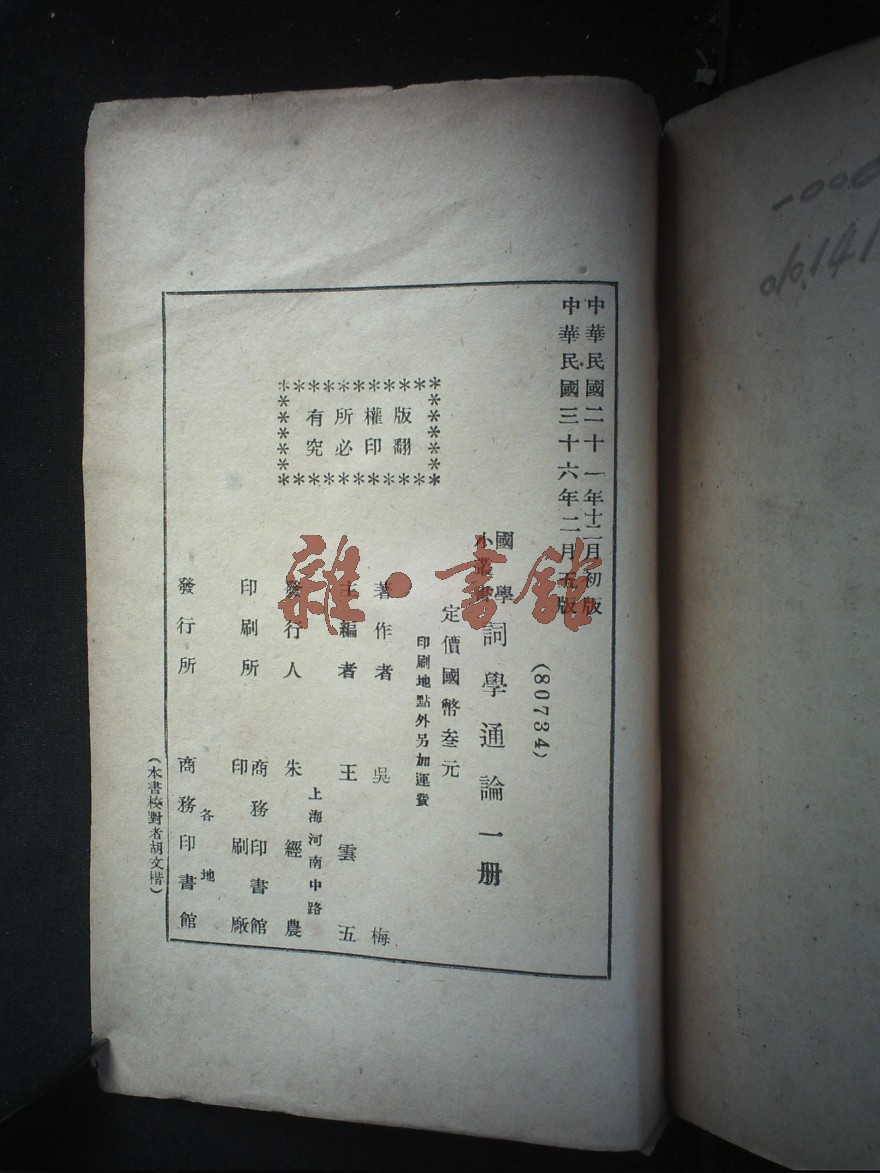 中華民國二十一年十二月初版
中華民國三十六年二月五版
(80734)
國學
小叢書
詞學通論一册
定價國幣叁元
印刷地點外另加運費
版權所有
翻印必究
著作者 吳梅
主編者 王雲五
上海河南中路
發行人 朱經農
印刷所 商務印書館
印刷廠
發行所 各地
商務印書館
(本書校對者胡文楷)
雜·書館
-000